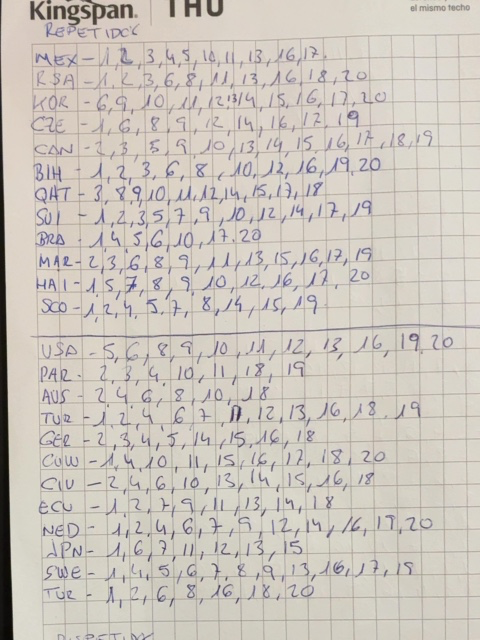 Kingspan. THU
el mismo techo
REPETIDOS
MEX - 1, 2, 3, 4, 5, 10, 11, 13, 16, 17.
RSA - 1, 2, 3, 6, 8, 11, 13, 16, 18, 20
KOR - 6, 9, 10, 11, 12, 13, 14, 15, 16, 17, 20
CZE - 1, 6, 8, 9, 12, 14, 16, 17, 19
CAN - 2, 3, 5, 9, 10, 13, 14, 15, 16, 17, 18, 19
BIH - 1, 2, 3, 6, 8, 10, 12, 16, 19, 20
QAT - 3, 8, 9, 10, 11, 12, 14, 15, 17, 18
SUI - 1, 2, 3, 5, 7, 9, 10, 12, 14, 17, 19
BRA - 1, 4, 5, 6, 10, 17, 20
MAR - 2, 3, 6, 8, 9, 11, 13, 15, 16, 17, 19
HAI - 1, 5, 7, 8, 9, 10, 12, 16, 17, 20
SCO - 1, 2, 4, 5, 7, 8, 14, 15, 19
USA - 5, 6, 8, 9, 10, 11, 12, 13, 16, 19, 20
PAR - 2, 3, 4, 10, 11, 18, 19
AUS - 2, 4, 6, 8, 10, 18
TUR - 1, 2, 4, 6, 7, 11, 12, 13, 16, 18, 19
GER - 2, 3, 4, 5, 14, 15, 16, 18
CUW - 1, 4, 10, 11, 15, 16, 17, 18, 20
CIV - 2, 4, 6, 10, 13, 14, 15, 16, 18
ECU - 1, 2, 7, 9, 11, 13, 14, 18
NED - 1, 2, 4, 6, 7, 9, 12, 14, 16, 19, 20
JPN - 1, 6, 7, 11, 12, 13, 15
SWE - 1, 4, 5, 6, 7, 8, 9, 13, 16, 17, 19
TUR - 1, 2, 6, 8, 16, 18, 20